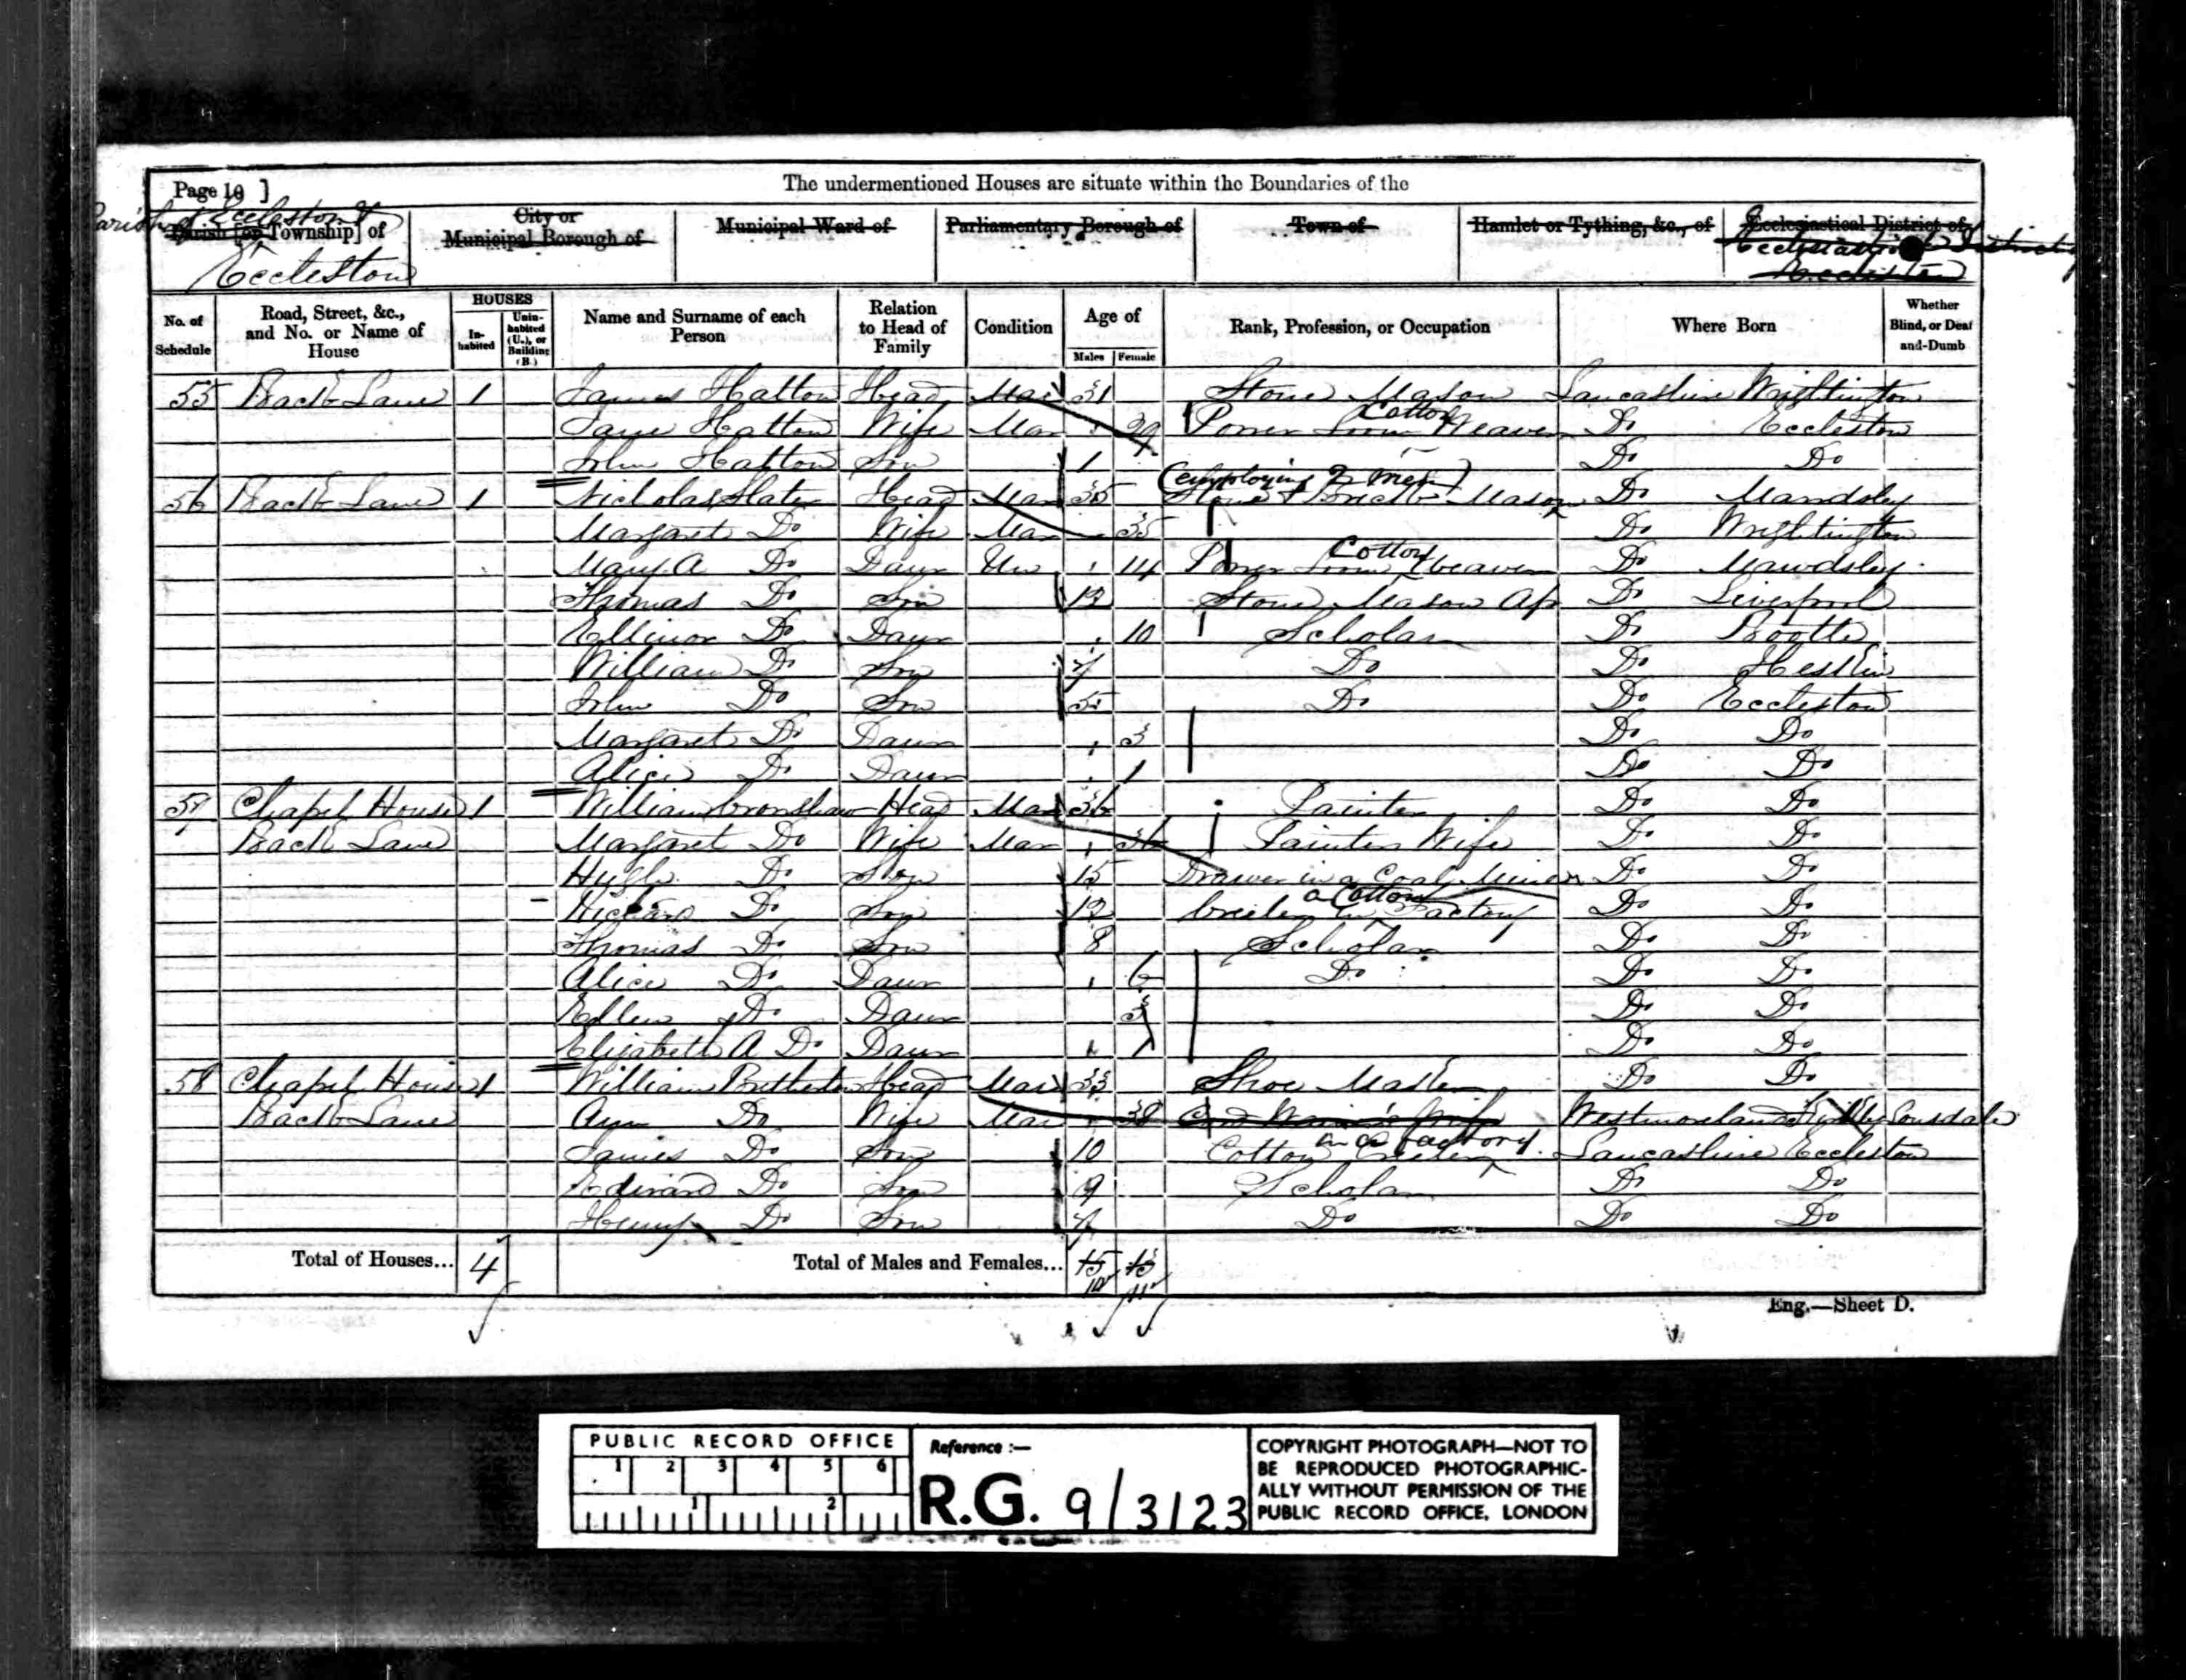 Page 10 ]
The undermentioned Houses are situate within the Boundaries of the
Parish of Eccleston &
Parish [or Township] of
Eccleston
City or
Municipal Borough of
Municipal Ward of
Parliamentary Borough of
Town of
Hamlet or Tything, &c., of
Ecclesiastical District of
Ecclesiastical District
Eccleston
No. of Schedule
Road, Street, &c., and No. or Name of House
HOUSES
In-habited
Unin-habited (U.), or Building (B.)
Name and Surname of each Person
Relation to Head of Family
Condition
Age of
Males Female
Rank, Profession, or Occupation
Where Born
Whether Blind, or Deaf and-Dumb
55 Back Lane 1 James Halton Head Mar 31 Stone Mason Lancashire Wrightington
Jane Halton Wife Mar 29 Power Loom Cotton Weaver Do Eccleston
John Halton Son 1 Do Do
56 Back Lane 1 Nicholas Slater Head Mar 35 Stone & Brick Mason (employing 2 men) Do Mawdsley
Margaret Do Wife Mar 35 Do Wrightington
Mary A Do Daur Un 14 Power Loom Cotton Weaver Do Mawdsley
Thomas Do Son 12 Stone Mason Ap Do Liverpool
Ellinor Do Daur 10 Scholar Do Bootle
William Do Son 7 Do Do Heskin
John Do Son 5 Do Do Eccleston
Margaret Do Daur 3 Do Do
Alice Do Daur 1 Do Do
57 Chapel House 1 William Cronshaw Head Mar 36 Painter Do Do
Back Lane Margaret Do Wife Mar 36 Painters Wife Do Do
Hugh Do Son 15 Drawer in a Coal Mine Do Do
Richard Do Son 12 Creeler in a Cotton Factory Do Do
Thomas Do Son 8 Scholar Do Do
Alice Do Daur 6 Do Do Do
Ellen Do Daur 3 Do Do
Elizabeth A Do Daur 1 Do Do
58 Chapel House 1 William Head Mar 33 Shoe Maker Do Do
Back Lane Ann Do Wife Mar 38 Cord Wainer's Wife Westmoreland Kirkby Lonsdale
James Do Son 10 Cotton Creeler in a factory Lancashire Eccleston
Edward Do Son 9 Scholar Do Do
Henry Do Son 7 Do Do Do
Total of Houses... 4
Total of Males and Females... 15 13
14 11
Eng.—Sheet D.
PUBLIC RECORD OFFICE
1 2 3 4 5 6
1 2
Reference :—
R.G. 9/3123
COPYRIGHT PHOTOGRAPH—NOT TO
BE REPRODUCED PHOTOGRAPHIC-
ALLY WITHOUT PERMISSION OF THE
PUBLIC RECORD OFFICE, LONDON